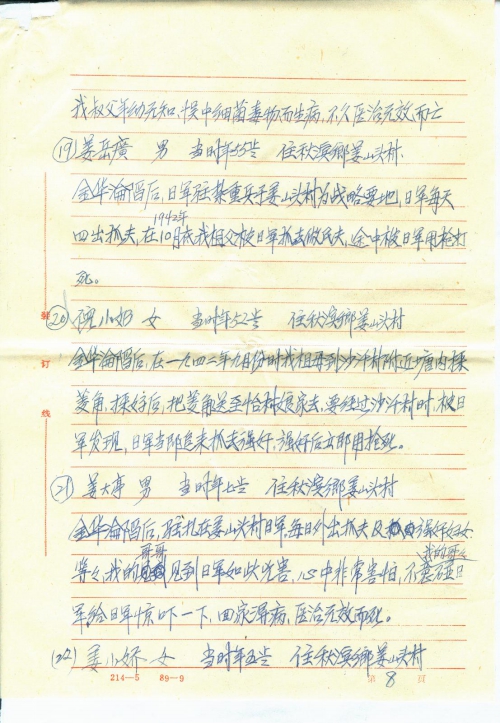 我叔父年幼无知、误中细菌毒物而生病,不久医治无效而亡
(19) 姜岳廣 男 当时年55岁 住秋滨乡姜山头村.
金华沦陷后,日军驻禁重兵于姜山头村为战略要地,日军每天
1942年
四出抓夫,在10月底我祖父被日军抓去做民夫,途中被日军用枪打
死。
(20) 倪小妲 女 当时年52岁 住秋滨乡姜山头村
金华沦陷后,在一九四二年九月份时我祖母到沙汗村附近塘内採
菱角,採好后,把菱角送至恰村娘家去,要经过沙汗村时,被日
军发现,日军当即追来抓去强奸,强奸后立即用枪死。
(21) 姜大亭 男 当时年七岁 住秋滨乡姜山头村
金华沦陷后,驻扎在姜山头村日军,每日外出抓夫及强奸妇女
哥哥 我的哥哥
等々,我的见到日军如此凶害,心中非常害怕,不意碰日
军给日军惊吓一下,回家得病,医治无效而死。
(22) 姜小娇 女 当时年五岁 住秋滨乡姜山头村
装
订
线
214—5 89—9
第 8 页